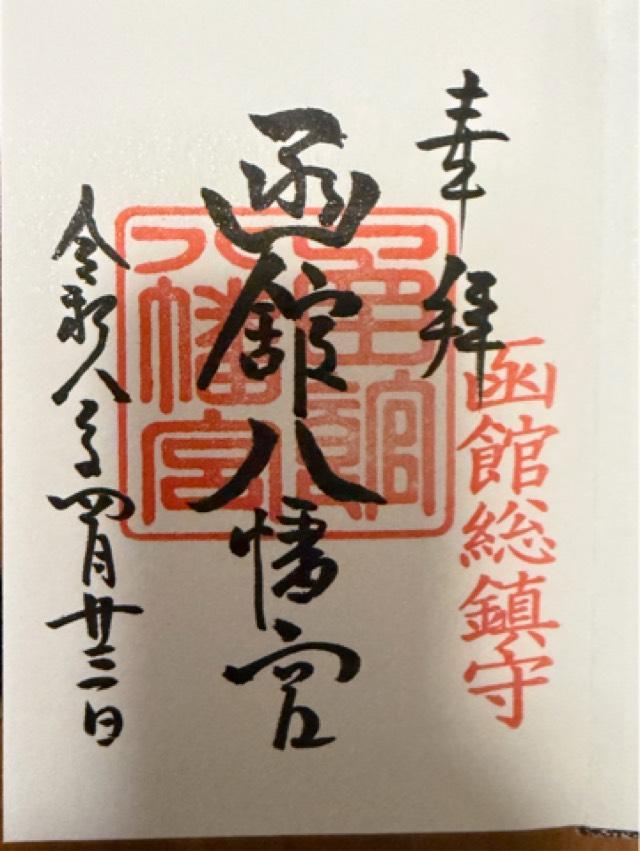 奉拝
函館総鎮守
函館八幡宮
函館
八幡宮
令和八年四月廿三日